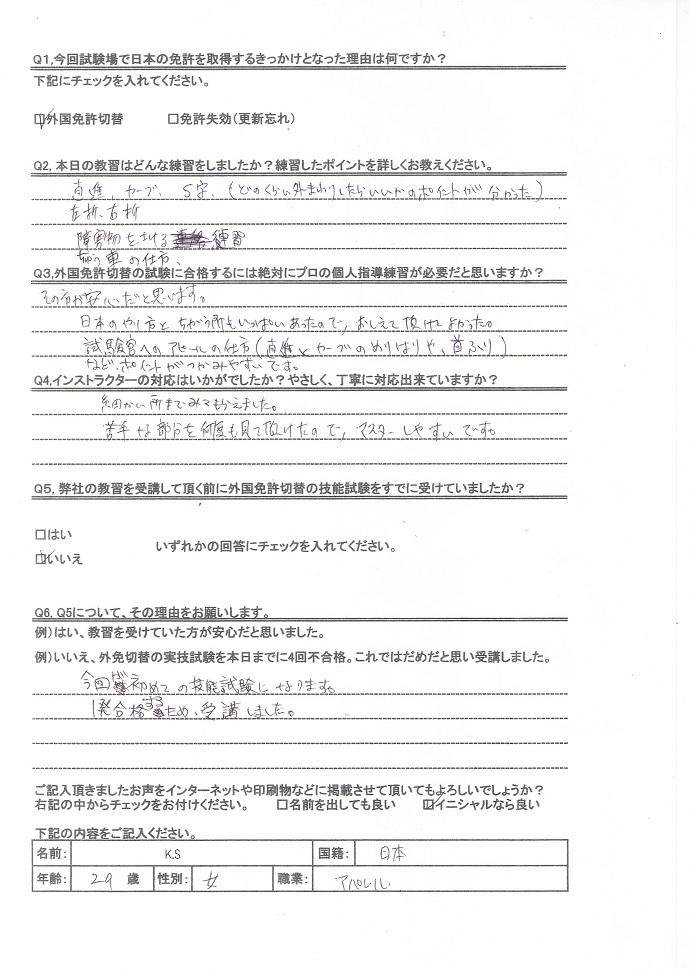 Q1,今回試験場で日本の免許を取得するきっかけとなった理由は何ですか？
下記にチェックを入れてください。
☑外国免許切替　□免許失効(更新忘れ)
Q2, 本日の教習はどんな練習をしましたか？練習したポイントを詳しくお教えください。
直進、カーブ、S字、(どのくらい外まわりしたらいいかのポイントが分かった)
左折、右折
障害物をよける練習
Q3,外国免許切替の試験に合格するには絶対にプロの個人指導練習が必要だと思いますか？
その方が安心だと思います。
日本のやり方とちがう所もいっぱいあったので、おしえて頂けてよかった。
試験官へのアピールの仕方(直進とカーブのめりはりや、首ふり)
などポイントがつかみやすいです。
Q4,インストラクターの対応はいかがでしたか？やさしく、丁寧に対応出来ていますか？
細かい所までみてもらえました。
苦手な部分を何度も見て頂けたので、マスターしやすいです。
Q5, 弊社の教習を受講して頂く前に外国免許切替の技能試験をすでに受けていましたか？
□はい
☑いいえ　いずれかの回答にチェックを入れてください。
Q6, Q5について、その理由をお願いします。
例)はい、教習を受けていた方が安心だと思いました。
例)いいえ、外免切替の実技試験を本日までに4回不合格。これではだめだと思い受講しました。
今回が初めての技能試験になります。
1発合格するため、受講しました。
ご記入頂きましたお声をインターネットや印刷物などに掲載させて頂いてもよろしいでしょうか？
右記の中からチェックをお付けください。　□名前を出しても良い　☑イニシャルなら良い
下記の内容をご記入ください。
名前: K.S 国籍: 日本
年齢: 29 歳 性別: 女 職業: アパレル